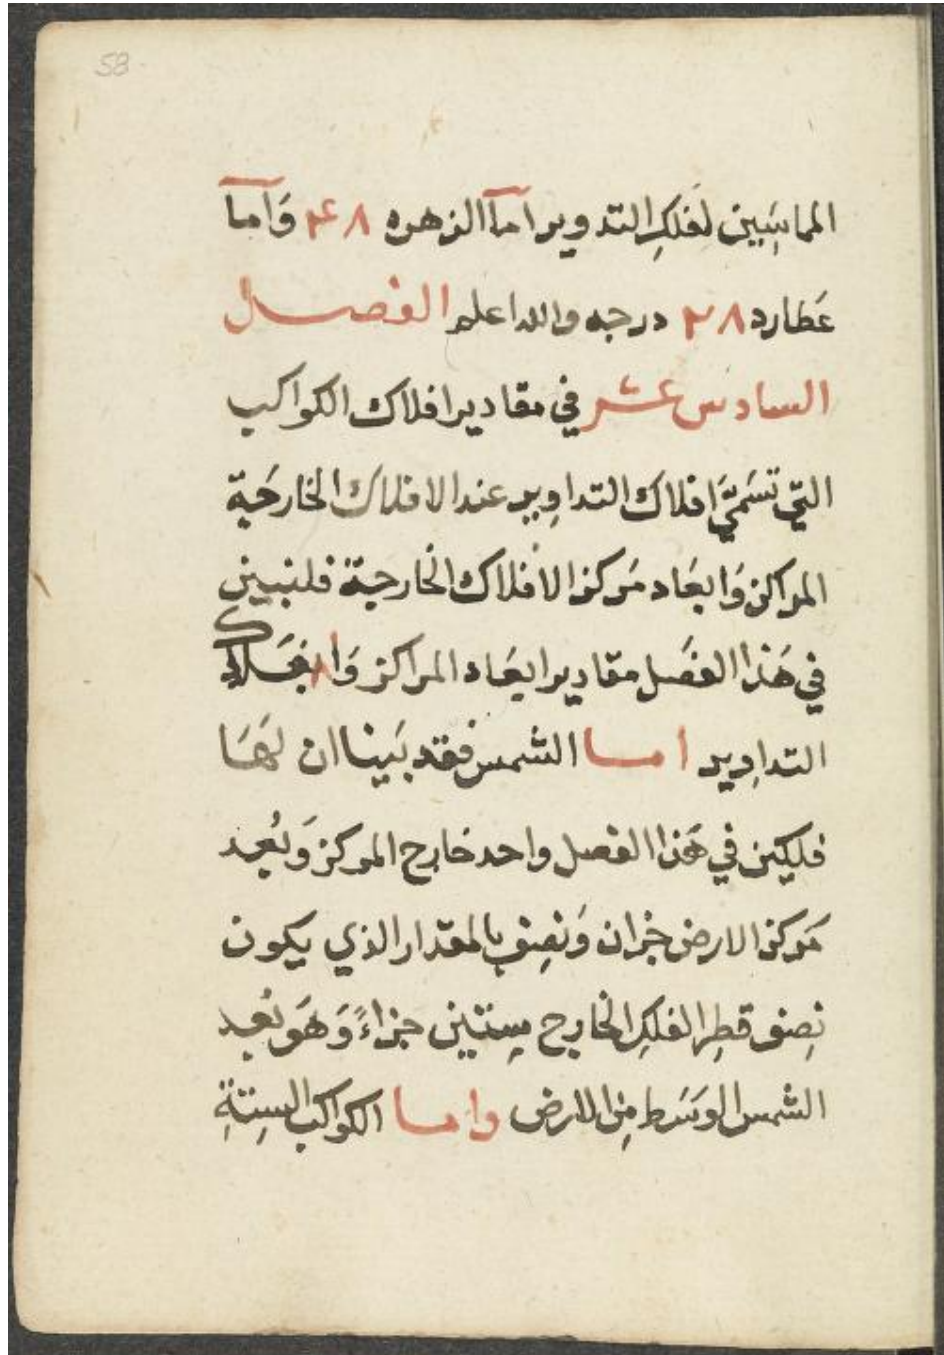 58
المماسَيين لفَلكِ التدوير اما الزهره ٤٨ وَاما
عَطارد ٣٨ درجه والله اعلم الفصل
السادس عشر في مقادير افلاك الكواكب
التي تسَميَّ افلاك التداوِير عند الافلاك الخارجَية
المراكز وَابعَاد مَركز الافلاك الخارجية فلنبين
في هَذا الفصَل مقادير ابعَاد المراكز وَافلاك
التداوِير اما الشمس فقد بَينا ان لهَا
فلكين في هَذا الفصل واحد خارج المركز وَبُعد
مَركز الارض جزان وَنصِف بالمقدار الذي يكون
نِصف قطِر الفلكِ الخارج سِتين جزاءً وَهوَ بُعد
الشمس الاوسَط مِن الارض واما الكواكب السِتةِ